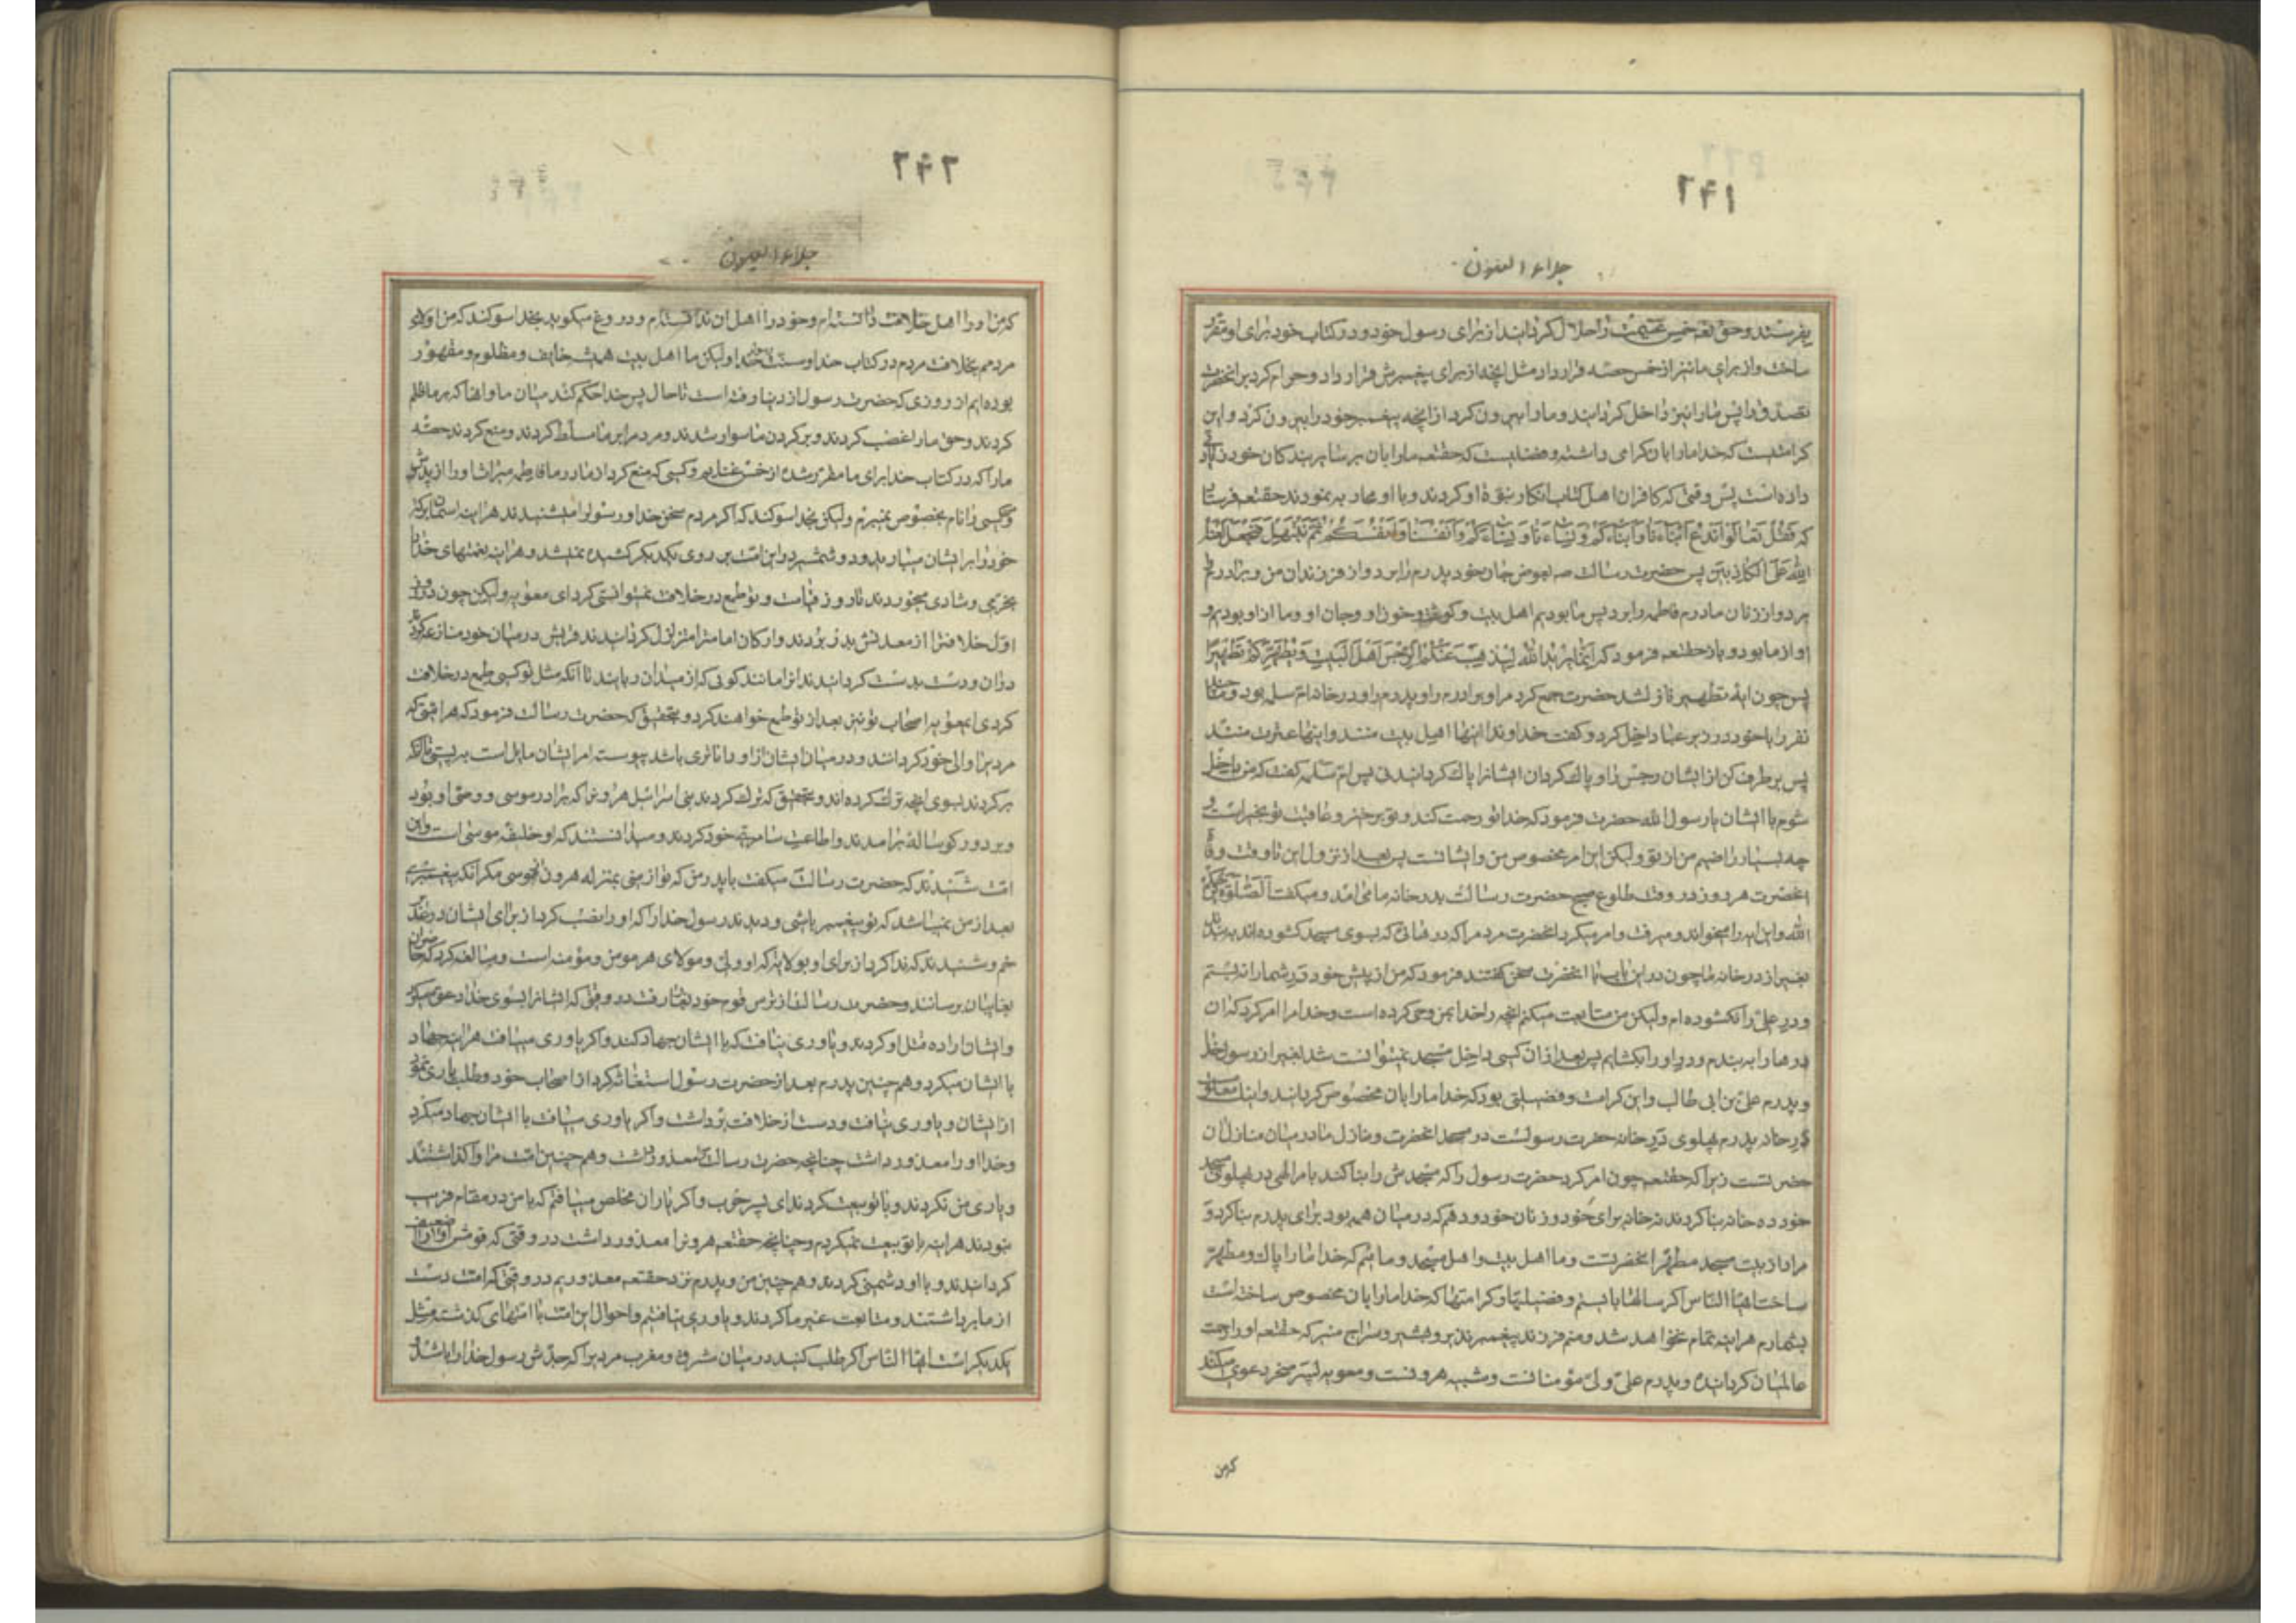 ۲۴۱
جلاء العیون
بفرستند و حق تعه خمس غنیمت را حلال کردانید از برای رسول خود و در کتاب خود برای او مقرر
ساخت و از برای ما نیز از خمس حصه قرار داد مثل انچه از برای پیغمبرش قرار داد و حرام کرد بر انحضرت
تصدق را پس ما را نیز داخل کردانید و ما را بیرون کرد از انچه پیغمبر خود را بیرون کرد و این
کرامتیست که خدا ما را بان کرامی داشته و فضلیست که حقتعه ما را بان بر سایر بندکان خود زیادتی
داده است پس وقتی که کافران اهل کتاب انکار نبوة او کردند و با او محاربه نمودند حقتعه فرستاد
که فَقُلْ تَعالَوْا نَدْعُ اَبْناءَنا وَ اَبْناءَکُمْ وَ نِساءَنا وَ نِساءَکُمْ وَ اَنْفُسَنا وَ اَنْفُسَکُمْ ثُمَّ نَبْتَهِلْ فَنَجْعَلْ لَعْنَةَ
اللهِ عَلَی الْکاذِبینَ پس حضرت رسالت صه بعوض جان خود پدرم را برد و از فرزندان من و برادرم را
برد و از زنان مادرم فاطمه را برد پس ما بودیم اهل بیت و کوشت و خون او و جان او و ما از او بودیم و
او از ما بود و باز حقتعه فرمود که اِنَّما یُریدُ اللهُ لِیُذْهِبَ عَنْکُمُ الرِّجْسَ اَهْلَ الْبَیْتِ وَ یُطَهِّرَکُمْ تَطْهیرًا
پس چون ایه تطهیر نازل شد حضرت جمع کرد مرا و برادرم را و پدرم را و مادرم را در خانه ام سلمه
نفر را با خود در زیر عبا داخل کرد و کفت خداوندا اینها اهل بیت منند و اینها عترت منند
پس بر طرف کن از ایشان رجس را و پاک کردان ایشانرا پاک کردانیدنی پس ام سلمه کفت که من داخل
شوم با ایشان یا رسول الله حضرت فرمود که خدا تو را رحمت کند و تو بر خیر و عاقبت تو بخیر است و
چه بسیار راضیم من از تو ولیکن این امر مخصوص من و ایشانست پس بعد از نزول این تا وقت وفات
انحضرت هر روز در وقت طلوع صبح حضرت رسالت بدر خانه ما می امد و میکفت الصلوة یرحمکم
الله و این ایه را میخواند و میرفت و امر میکرد انحضرت مردم را که درهائی که بسوی مسجد کشوده اند به بندند
بغیر از در خانه ما چون در این باب با انحضرت سخن کفتند فرمود که من از پیش خود در شما را نه بستم
و در علی را نکشوده ام ولیکن من متابعت میکنم انچه را خدا بمن وحی کرده است و خدا مرا امر کرد که ان
درها را به بندم و در او را بکشایم پس بعد از ان کسی داخل مسجد نمیتوانست شد بغیر از رسول خدا
و پدرم علی بن ابی طالب و این کرامت و فضیلتی بود که خدا ما را بان مخصوص کردانید و اینک معلوم
در خانه پدرم پهلوی در خانه حضرت رسولست در مسجد انحضرت و منازل ما در میان منازل ان
حضرتست زیرا که حقتعه چون امر کرد حضرت رسول را که مسجدش را بنا کند بامر الهی در پهلوی مسجد
خود ده خانه بنا کردند نه خانه برای خود و زنان خود و دهم که در میان همه بود برای پدرم بنا کرد و
مراد از بیت مسجد مطهر انحضرتست و ما اهل بیت و اهل مسجد و مائیم که خدا ما را پاک و مطهر
ساخت ایها الناس اکر سالها بایستم و فضیلتها و کرامتها که خدا ما را بان مخصوص ساخته است
بشمارم هراینه تمام نخواهد شد و منم فرزند پیغمبر نذیر و بشیر و سراج منیر که حقتعه او را رحمت
عالمیان کردانیده و پدرم علی ولی مؤمنانست و شبیه هرونست و معویه پسر صخر دعوی میکند
کرمن
۲۴۲
جلاء العیون
که من او را اهل خلافت دانسته ام و خود را اهل ان ندانسته ام و دروغ میکوید بخدا سوکند که من اولای
مردمم بخلافت مردم در کتاب خدا و سنت او لیکن ما اهل بیت همیشه خایف و مظلوم و مقهور
بوده ایم از روزی که حضرت رسول از دنیا رفته است تا حال پس خدا حکم کند میان ما و انها که بر ما ظلم
کردند و حق ما را غصب کردند و بر کردن ما سوار شدند و مردم را بر ما مسلط کردند و منع کردند حصه
ما را که در کتاب خدا برای ما مقرر شده از خمس غنایم و کسی که منع کرد از مادر ما فاطمه میراث او را از پدرش
و کسی را نام بخصوص نمیبرم ولیکن بخدا سوکند که اکر مردم سخن خدا و رسول را میشنیدند هراینه اسمان برکت
خود را بر ایشان میبارید و دو شمشیر در این امت بر روی یکدیکر کشیده نمیشد و هراینه نعمتهای خدا را
بخرمی و شادی میخوردند تا روز قیامت و تو طمع در خلافت نمیتوانستی کرد ای معویه ولیکن چون در روز
اول خلافترا از معدنش بدر بردند و ارکان امامترا متزلزل کردانیدند قریش در میان خود منازعه کردند
در ان و دست بدست کردانیدند انرا مانند کوئی که از میدان ربایند تا انکه مثل تو کسی طمع در خلافت
کردی ایمعویه و اصحاب تو نیز بعد از تو طمع خواهند کرد و بتحقیق که حضرت رسالت فرمود که هر امتی که
مردیرا والی خود کردانند و در میان ایشان از او داناتری باشد پیوسته امر ایشان مایل است به پستی تا انکه
برکردند بسوی انچه ترک کرده اند و بتحقیق که ترک کردند بنی اسرائیل هرونرا که برادر موسی و وصی او بود
و بر دور کوساله برامدند و اطاعت سامری خود کردند و میدانستند که او خلیفه موسی است و این
امت شنیدند که حضرت رسالت میکفت با پدر من که تو از منی بمنزله هرون از موسی مکر انکه پیغمبری
بعد از من نمیباشد که تو پیغمبر باشی و دیدند رسول خدا را که او را نصب کرد از برای ایشان در غدیر
خم و شنیدند که ندا کرد از برای او بولایت که او ولی و مولای هر مومن و مؤمنه است و مبالغه کرد که حاضران
بغایبان برسانند و حضرت رسالت از ترس قوم خود بغار رفت در وقتی که ایشانرا بسوی خدا دعوت میکرد
و ایشان اراده قتل او کردند و یاوری نیافت که با ایشان جهاد کند و اکر یاوری مییافت هراینه جهاد
با ایشان میکرد و هم چنین پدرم بعد از حضرت رسول استغاثه کرد از اصحاب خود و طلب یاری نمود
از ایشان و یاوری نیافت و دست از خلافت برداشت و اکر یاوری مییافت با ایشان جهاد میکرد
و خدا او را معذور داشت چنانچه حضرت رسالت معذور داشت و هم چنین امت مرا واکذاشتند
و یاری من نکردند و با تو بیعت کردند ای پسر حرب و اکر یاران مخلص مییافتم که با من در مقام فریب
نبودند هراینه با تو بیعت نمیکردم و چنانچه حقتعه هرونرا معذور داشت در وقتی که قومش او را ضعیف
کردانیدند و با او دشمنی کردند و هم چنین من و پدرم نزد حقتعه معذوریم در وقتی که امت دست
از ما برداشتند و متابعت غیر ما کردند و یاوری نیافتیم و احوال این امت با امتهای کذشته مثل
یکدیکر است ایها الناس اکر طلب کنید در میان مشرق و مغرب مردیرا که جدش رسول خدا را باشد